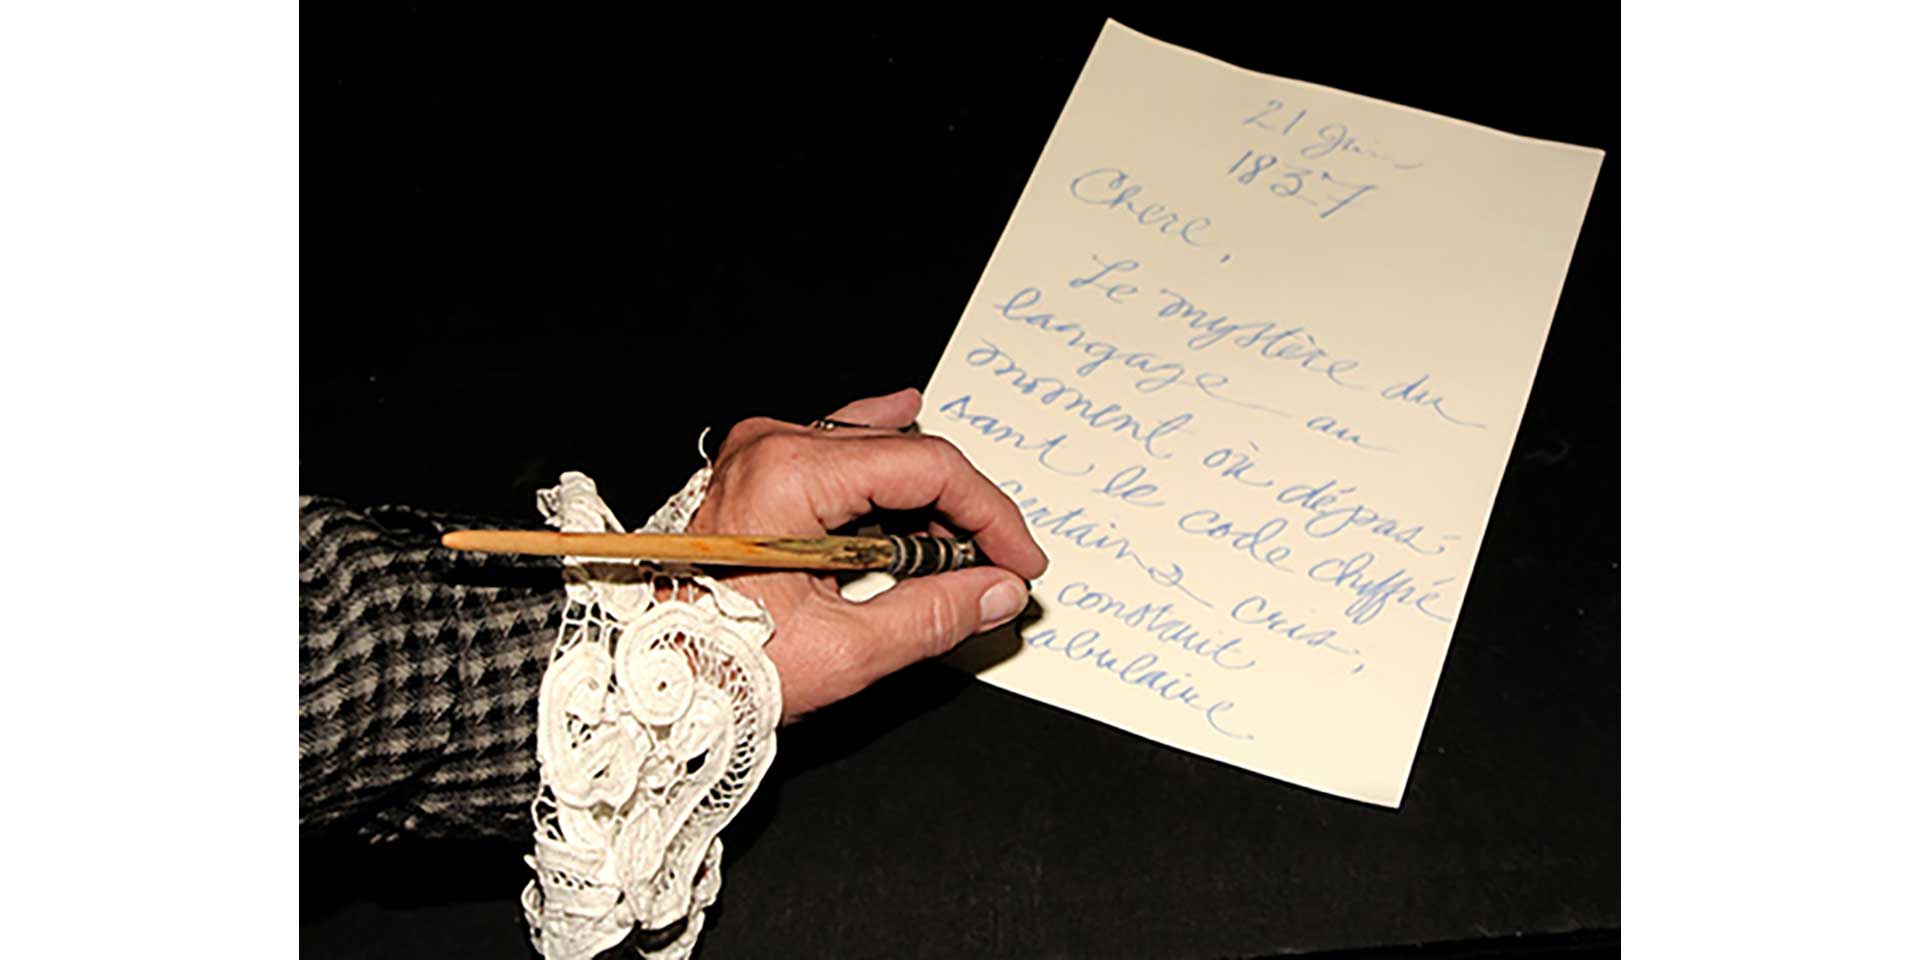 21 Juin
1837
Chere,
Le mystère du
langage au
moment où dépas-
sant le code chiffré
certains cris,
constuit
abulaire